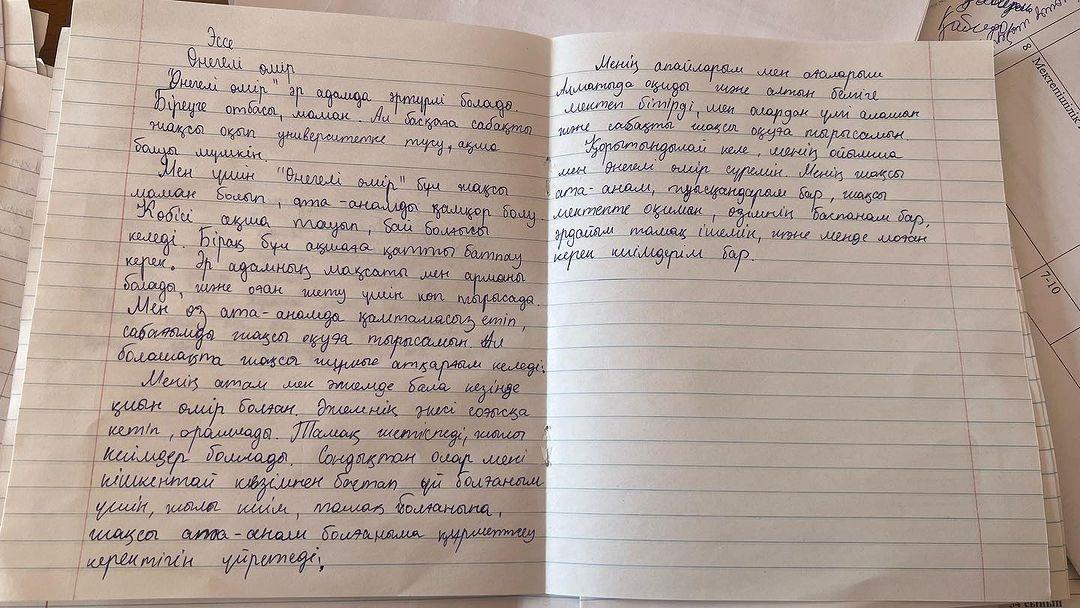 Эссе
Өнегелі өмір
"Өнегелі өмір" әр адамда әртүрлі болады.
Біреуге отбасы, маман. Ал басқаға сабақты
жақсы оқып университетке түсу, ақша
болуы мүмкін.
Мен үшін "Өнегелі өмір" бұл жақсы
маман болып, ата-анамды қамқор болу.
Көбісі ақша тауып, бай болғысы
келеді. Бірақ бұл ақшаға қатты батпау
керек. Әр адамның мақсаты мен арманы
болады, және оған жету үшін көп тырысады.
Мен өз ата-анамды қамтамасыз етіп,
сабағымды жақсы оқуға тырысамын. Ал
болашақта жақсы жұмыс атқарғым келеді.
Менің атам мен әжемде бала кезінде
қиын өмір болған. Әжемнің әкесі соғысқа
кетіп, оралмады. Тамақ жетіспеді, жылы
киімдер болмады. Сондықтан олар мені
кішкентай кезімнен бастап үй болғаным
үшін, жылы киім, тамақ болғанына,
жақсы ата-анам болғаныма құрметтеу
керектігін үйретеді.
Менің апайларым мен ағаларым
Алматыда оқиды және алтын белгіге
мектеп бітірді, мен олардан үлгі аламын
және сабақты жақсы оқуға тырысамын.
Қорытындылай келе, менің ойымша
мен өнегелі өмір сүремін. Менің жақсы
ата-анам, туысқандарым бар, жақсы
мектепте оқимын, өзімнің баспанам бар,
әрдайым тамақ ішемін, және менде маған
керек киімдерім бар.
8
Мектепішілік
7-10